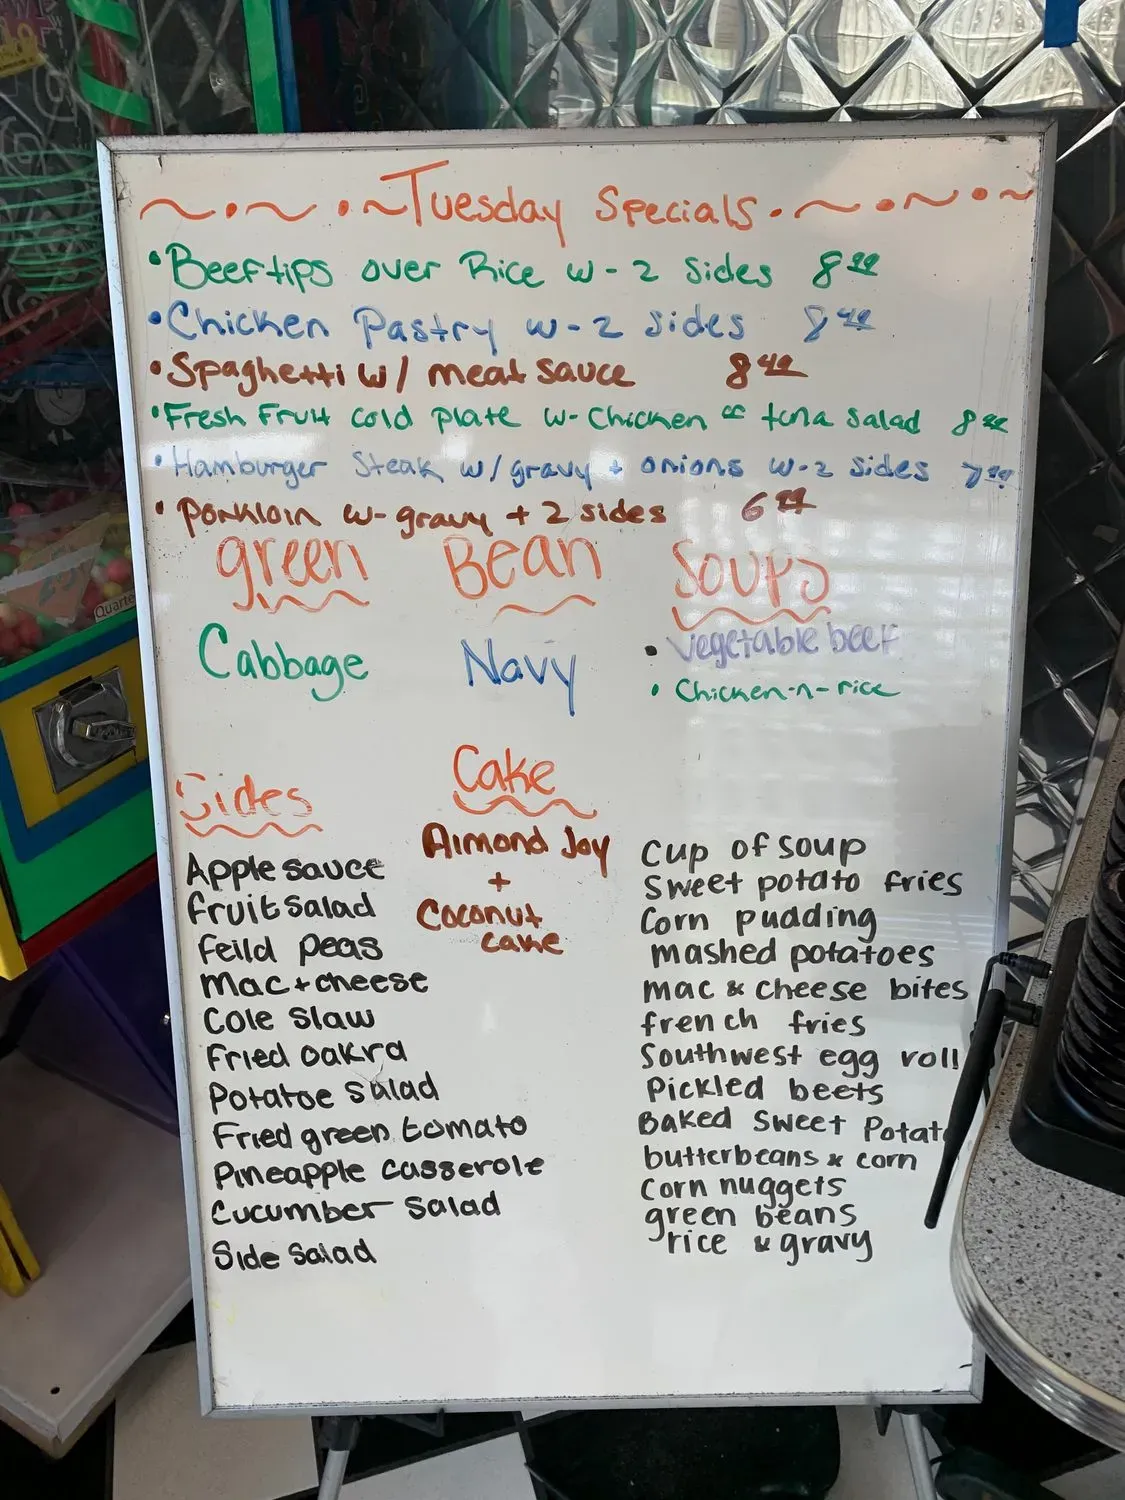 ~.~ .~Tuesday Specials.~.~.~
•Beeftips over Rice w-2 Sides 8.99
•Chicken Pastry w-2 sides 8.49
•Spaghetti w/ meat sauce 8.49
•Fresh Fruit cold plate w-Chicken or tuna salad 8
•Hamburger Steak w/gravy + onions w-2 sides 7.99
•Porkloin w-gravy + 2 sides 6.99
green
Cabbage
Bean
Navy
Soups
• Vegetable beef
• Chicken-n-rice
Sides
Apple sauce
Fruit salad
Feild peas
Mac+cheese
Cole Slaw
Fried oakra
Potatoe salad
Fried green tomato
Pineapple casserole
Cucumber Salad
Side salad
Cake
Almond Joy
+
Coconut
cake
Cup of soup
Sweet potato fries
Corn pudding
mashed potatoes
mac & cheese bites
french fries
Southwest egg roll
Pickled beets
Baked Sweet Potat
butterbeans & corn
Corn nuggets
green beans
rice & gravy
Quarte